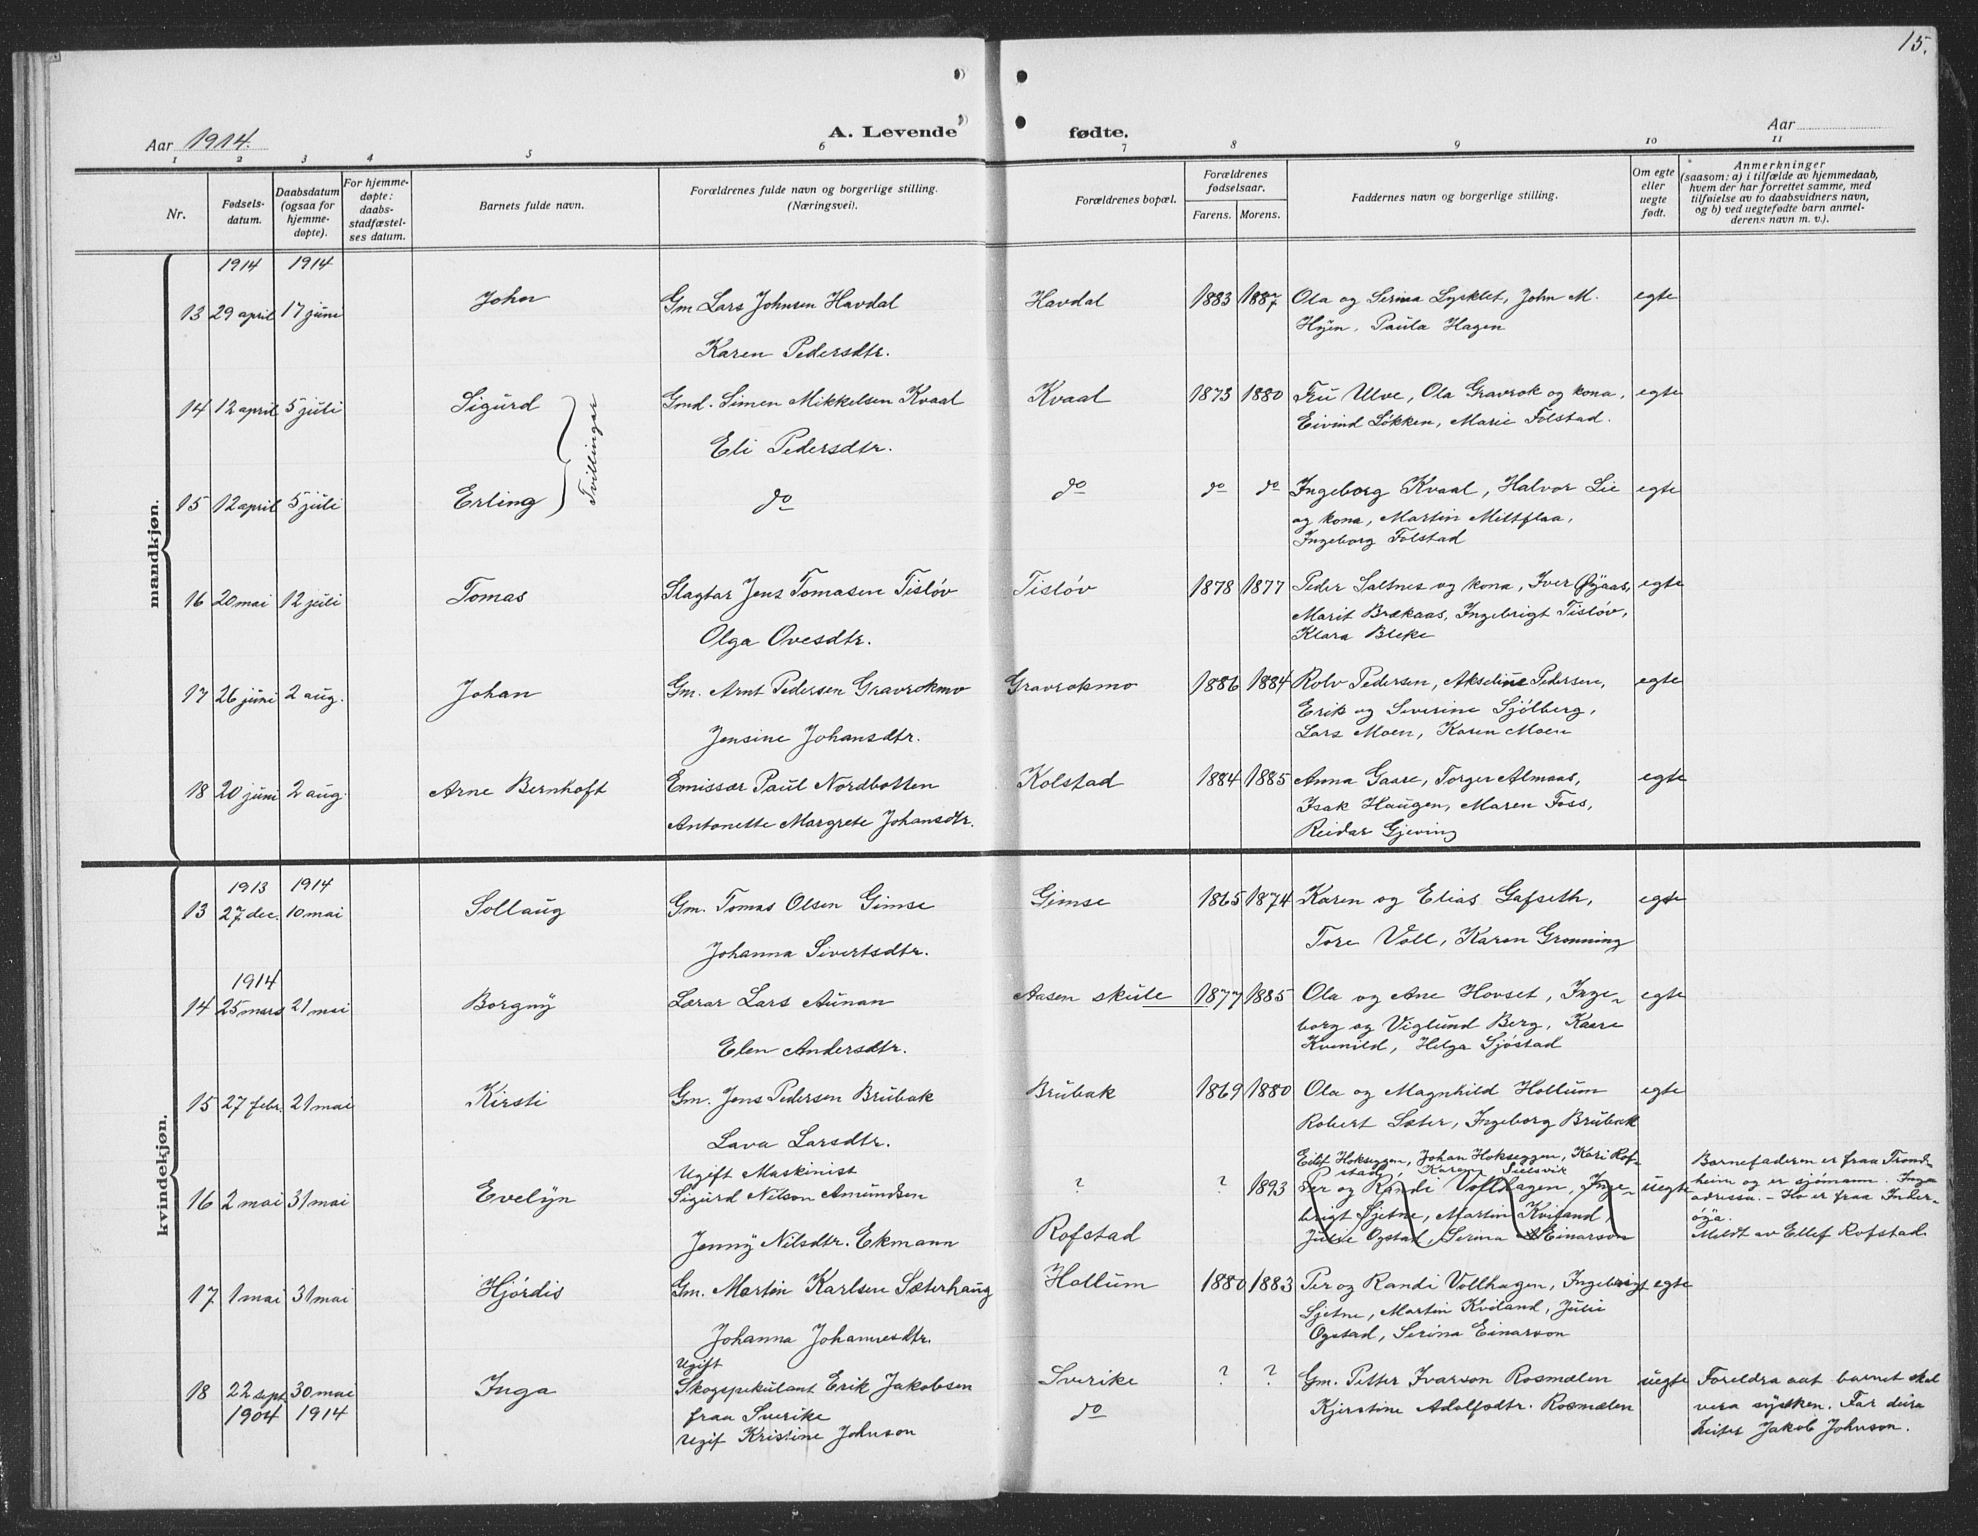 15.
Aar 1914. A. Levende fødte. Aar
1 2 3 4 5 6 7 8 9 10 11
Nr.
Fødsels-
datum.
Daabsdatum
(ogsaa for
hjemme-
døpte).
For hjemme-
døpte:
daabs-
stadfæstel-
ses datum.
Barnets fulde navn.
Forældrenes fulde navn og borgerlige stilling.
(Næringsvei).
Forældrenes bopæl.
Forældrenes
fødselsaar.
Farens. Morens.
Faddernes navn og borgerlige stilling.
Om egte
eller
uegte
født.
Anmerkninger
(saasom: a) i tilfælde av hjemmedaab,
hvem der har forrettet samme, med
tilføielse av to daabsvidners navn,
og b) ved uegtefødte barn anmel-
derens navn m. v.).
mandkjøn.
1914 1914
13 29 april 17 juni John Gm Lars Johnsen Havdal Havdal 1883 1887 Ola og Serina Lyrklet, John M. egte
Hyen, Paula Hagen
Karen Pedersdtr.
14 12 april 5 juli Sigurd Gmd. Simen Mikkelsen Kvaal Kvaal 1873 1880 Fru Ulve, Ola Gravrok og kona, egte
Eivind Løkken, Marie Folstad.
Eli Pedersdtr.
Tvillingar
15 12 april 5 juli Erling do do do do Ingeborg Kvaal, Halvor Lie egte
og kona, Martin Miltflaa,
Ingeborg Folstad
16 20 mai 12 juli Tomas Slagtar Jens Tomasen Tisløv Tisløv 1878 1877 Peder Saltnes og kona, Iver Øyaas, egte
Marit Brækaas, Ingebrigt Tisløv,
Olga Ovesdtr. Klara Bleke
17 26 juni 2 aug. Johan Gm. Arnt Pedersen Gravrokmo Gravrokmo 1886 1884 Rolv Pedersen, Akseline Pedersen, egte
Erik og Severine Sjølberg,
Jensine Johansdtr. Lars Moen, Karen Moen
18 20 juni 2 aug. Arne Bernhoft Emissær Paul Nordbotten Kolstad 1884 1885 Anna Gaare, Torger Almaas, egte
Isak Haugen, Maren Foss,
Antonette Margrete Johansdtr. Reidar Gjeving
kvindekjøn.
1913 1914
13 27 dec. 10 mai Sollaug Gm. Tomas Olsen Gimse Gimse 1865 1874 Karen og Elias Gafseth, egte
Johanna Sivertsdtr. Tore Voll, Karen Grønning
1914
14 25 mars 21 mai Borgny Lærar Lars Aunan Aasen skule 1877 1885 Ola og Ane Hovset, Inge- egte
borg og Viglund Berg, Kaare
Elen Andersdtr. Kvenild, Helga Sjøstad
15 27 febr. 21 mai Kirsti Gm. Jens Pedersen Brubak Brubak 1869 1880 Ola og Magnhild Hollum egte
Lava Larsdtr. Robert Sæter, Ingeborg Brubak
Eilef Hokseggen, Johan Hokseggen, Kari Rof-
stad, Karen Sielsvik
16 2 mai 31 mai Evelyn Ugift Maskinist
Sigurd Nilson Amundsen ? ? 1893 Per og Randi Vollhagen, Inge- uegte
brigt Sjetne, Martin Kviland,
Jenny Nilsdtr. Ekmann Rofstad Julie Ogstad, Serina Einarson
Barnefaderen er fraa Trond-
heim og er sjømann. Inga
adressa. - Ho er fraa Inder-
øya.
Meldt av Ellef Rofstad.
17 1 mai 31 mai Hjørdis Gm. Martin Karlsen Sæterhaug Hollum 1880 1883 Per og Randi Vollhagen, Ingebrigt egte
Sjetne, Martin Kviland, Julie
Johanna Johannesdtr. Ogstad, Serina Einarson
18 22 sept. 1904 30 mai 1914 Inga Ugift
Skogspekulant Erik Jakobsen Sverike ? ? Gm. Petter Ivarson Rosmælen uegte
fraa Sverike do Kjerstine Adolfodtr. Rosmælen
Ugif Kristine Johnson
Foreldra aat barnet skal
vera sysken. Far deira
heiter Jakob Johnson.